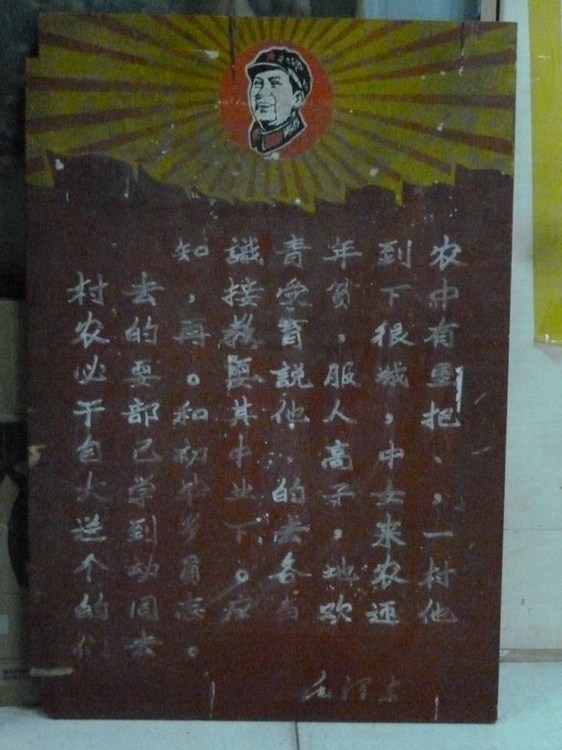 知識青年到农
村去，接受贫下中
农的再教育，很有
必要。要説服城里
干部和其他人，把
自己初中、高中、
大学毕业的子女，
送到乡下去，来一
个动員。各地农村
的同志应当欢迎他
们去。
毛泽东